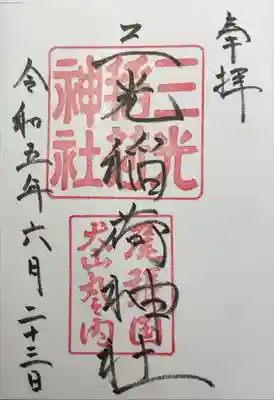 奉拝
三光稲荷神社
三光
稲荷
神社
尾張国
犬山城内
令和五年六月二十三日